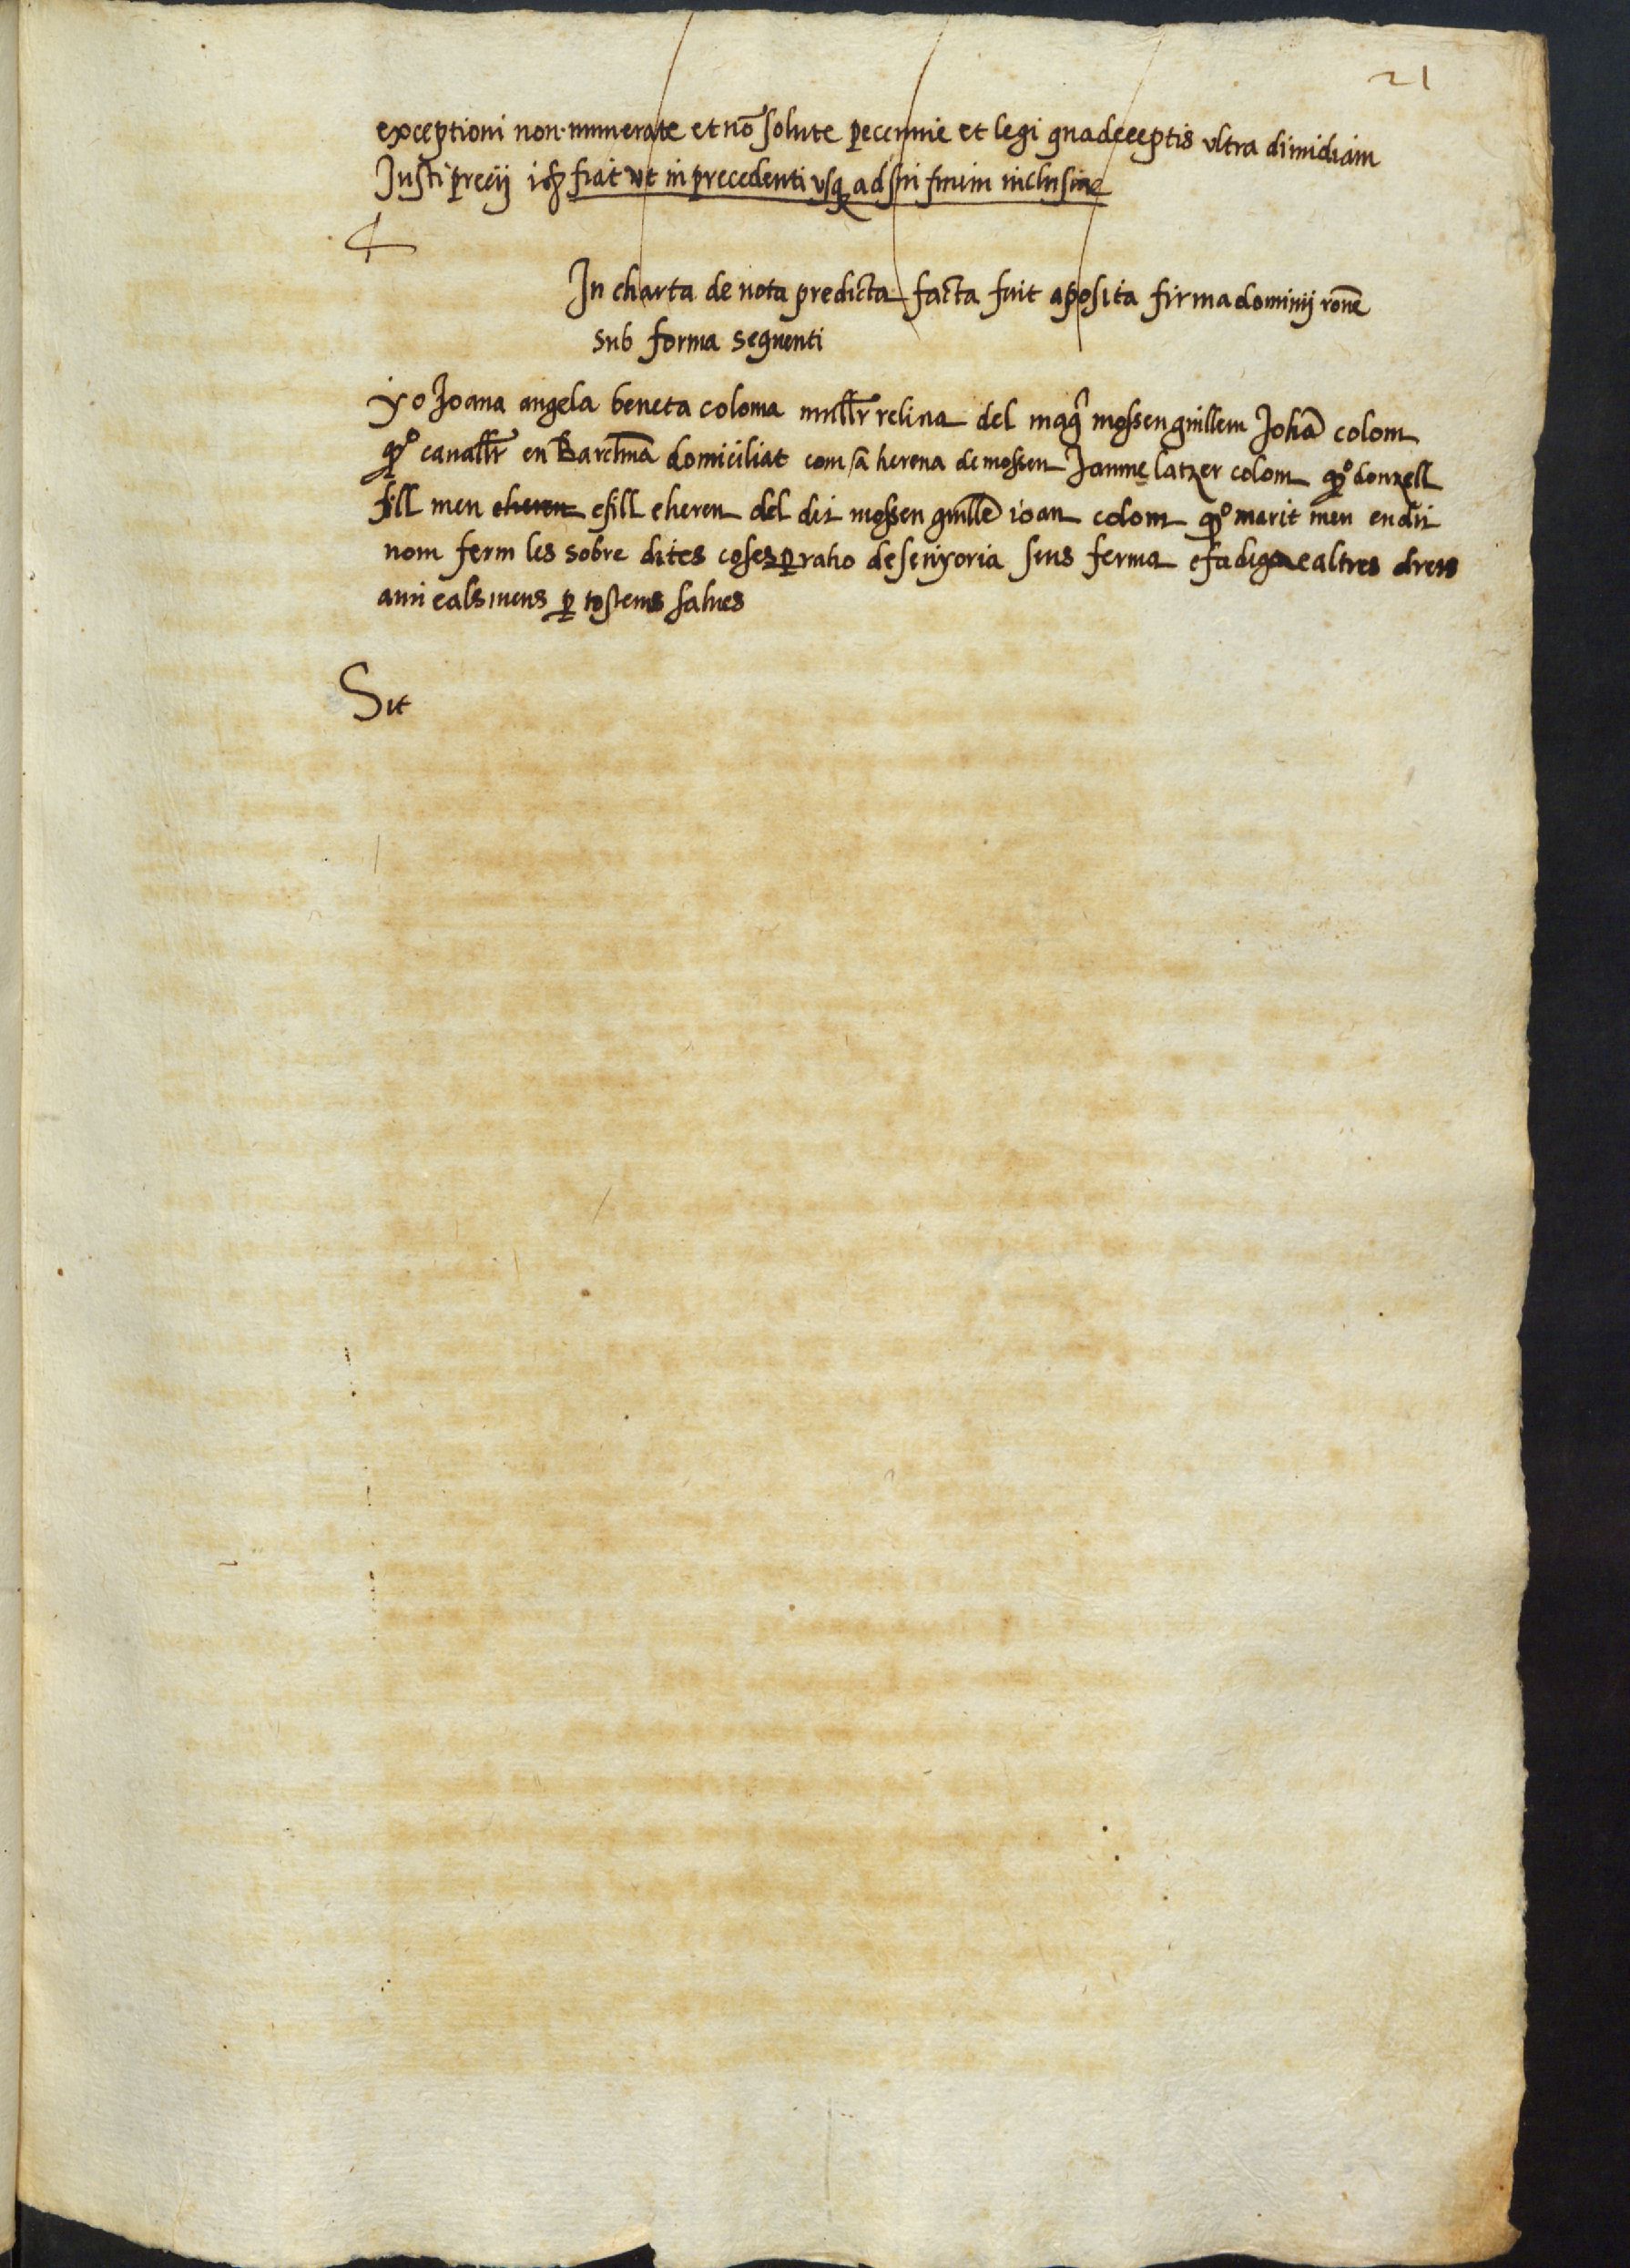 21
exceptioni non numerate et nō solute peccunie et legi qua deceptis ultra dimidiam
Justi precij fiat ut in precedenti usq̨ ad sui finem inclusive
In charta de nota predicta facta fuit aposita firma dominij rōne
sub forma sequenti
yo Joana angela beneta coloma mullr̄ relicta del mag͡ mossen guillem Johā colom
q̊ cavallr̄ en Barc̄lna domiciliat com a hereua de mossen Jaume latzer colom q̊ donzell
fill meu ehereu e fill e hereu del dit mossen guillē ioan colom q̊ marit meu en dit
nom ferm les sobre dites coses ꝑ raho de senyoria sens ferma e fadiga e altres drets
a mi e als meus ꝑ tostems salves
Sit